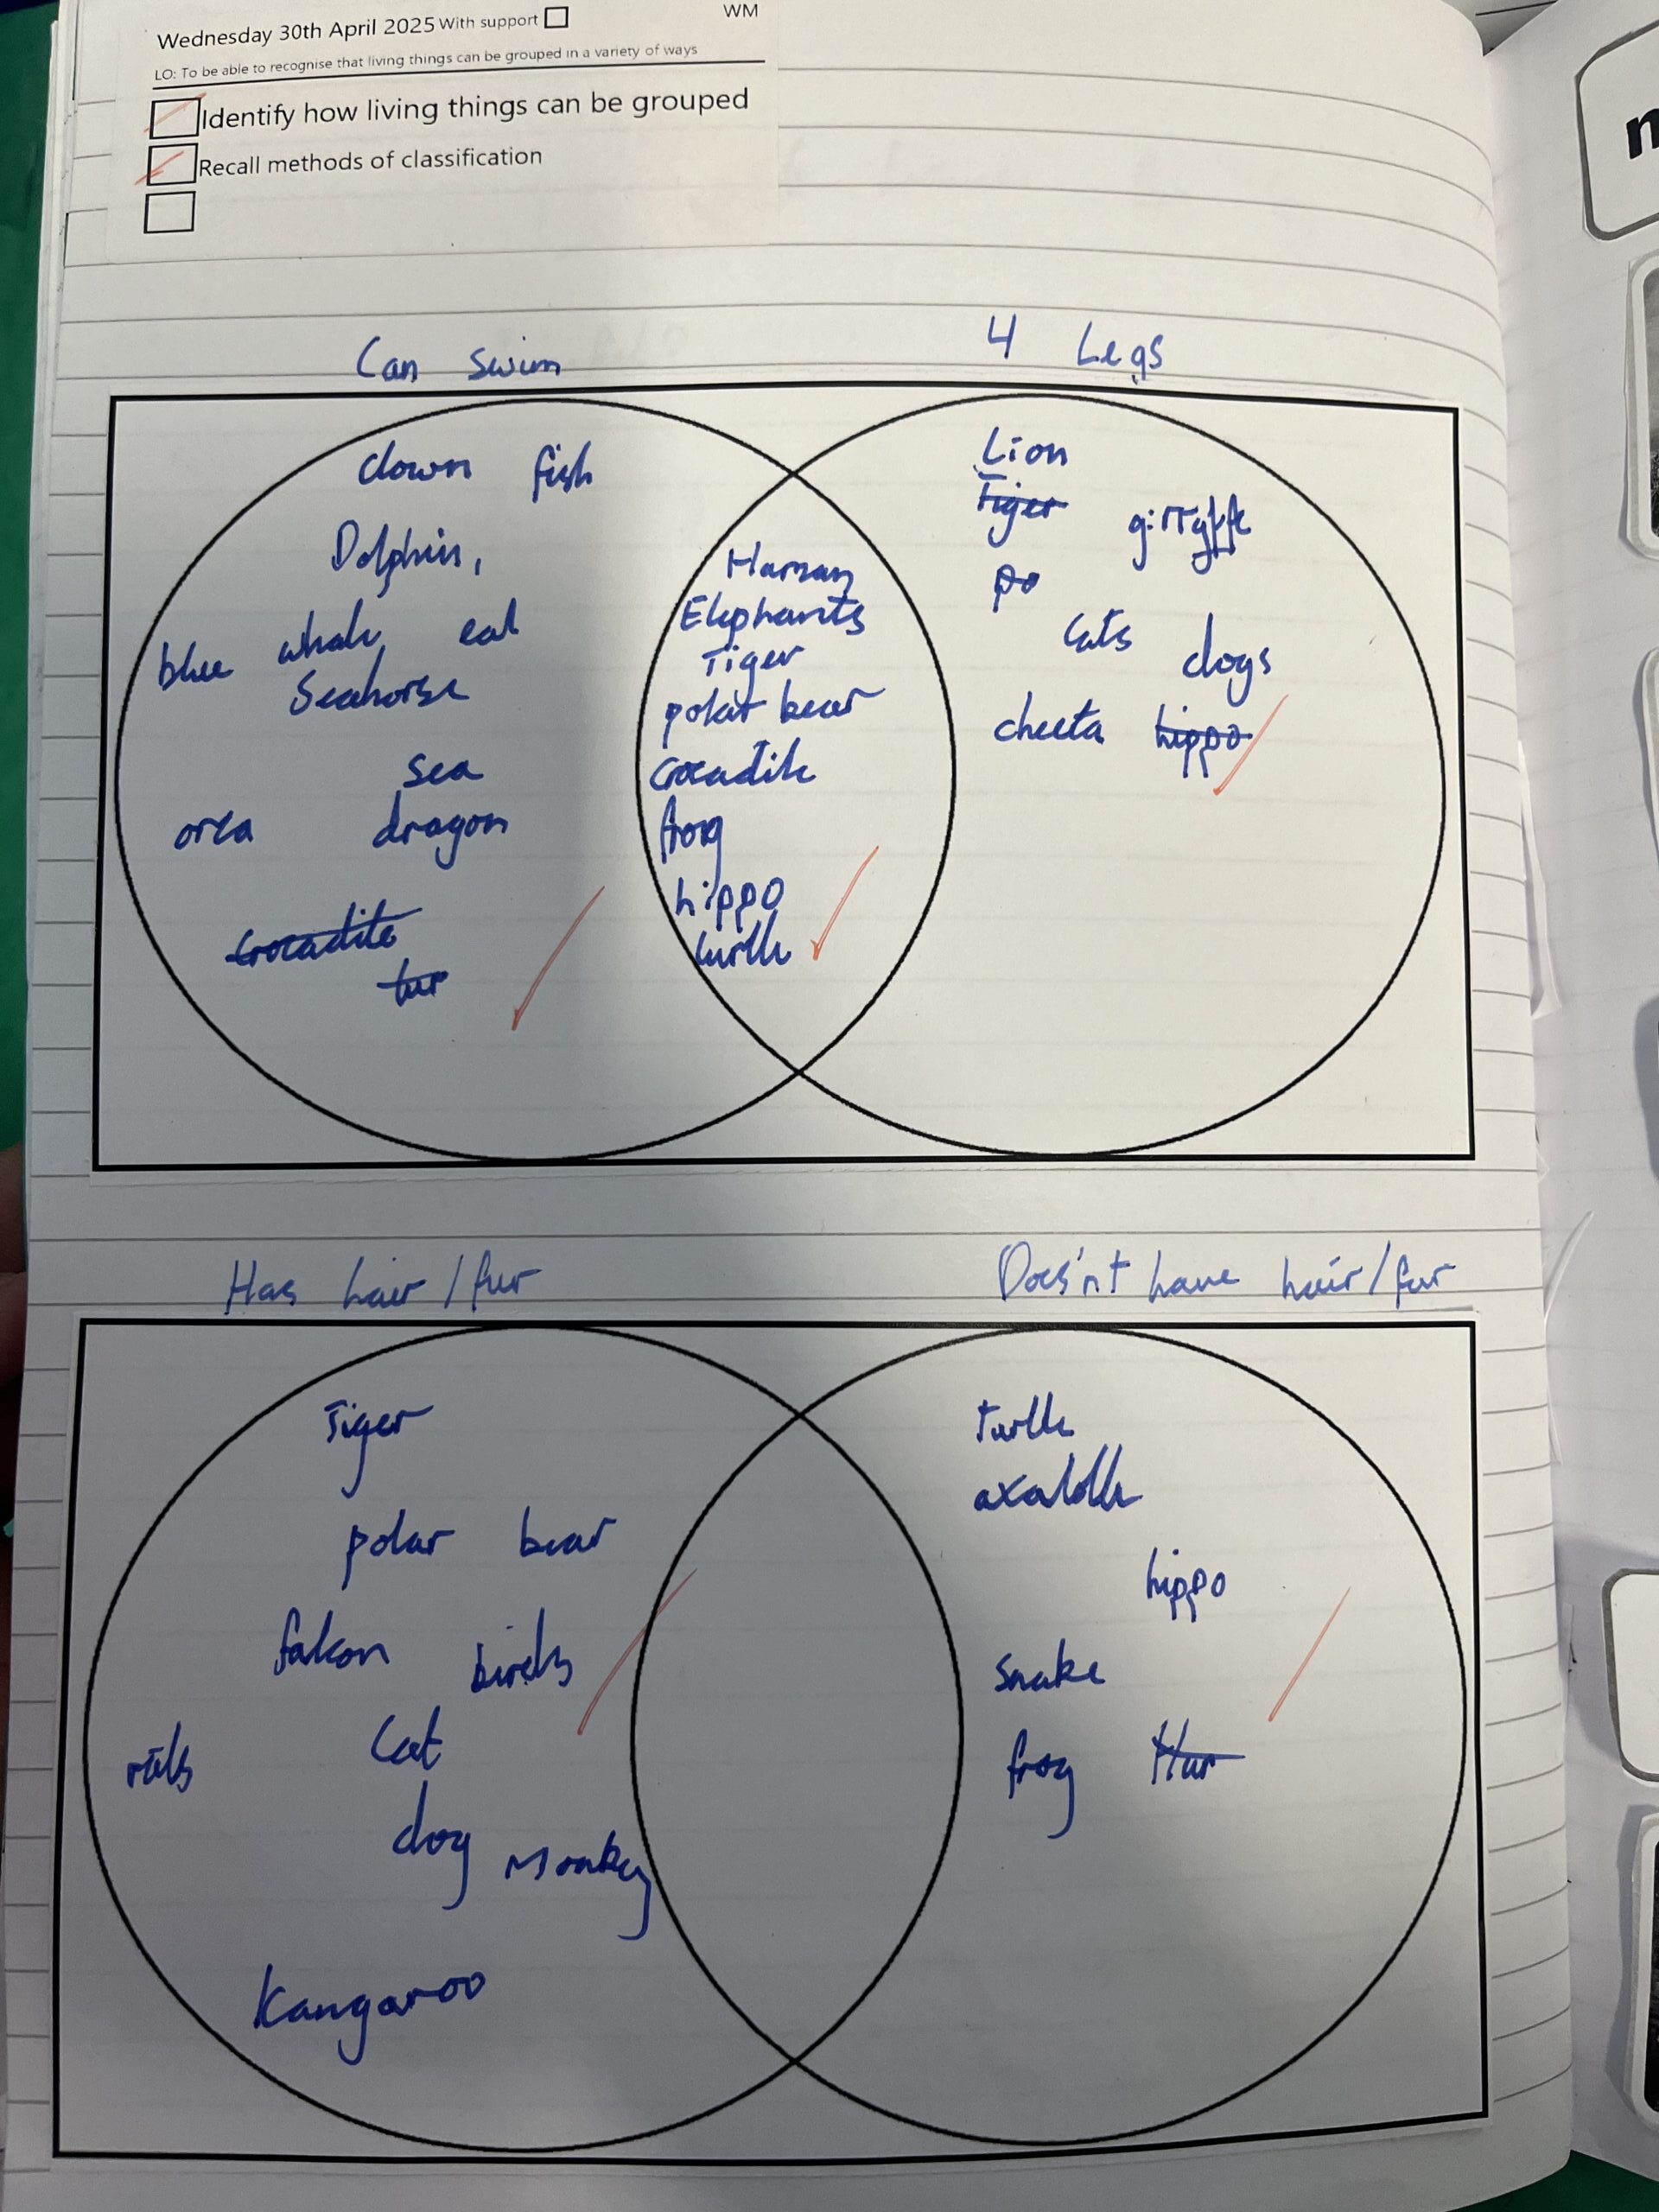 WM
Wednesday 30th April 2025 With support
LO: To be able to recognise that living things can be grouped in a variety of ways
Identify how living things can be grouped
Recall methods of classification
Can swim
4 Legs
clown fish
Dolphin,
blue whale, eal
Seahorse
sea
dragon
orca
Crocadile
tur
Human
Elephants
Tiger
polar bear
Crocadile
frog
hippo
turtle
Lion
Tiger
po
cats dogs
cheeta hippo
Has hair/fur
Does'nt have hair/fur
Tiger
polar bear
falcon birds
rats Cat
dog Monkey
Kangaroo
Turtle
hippo
snake
frog Hur